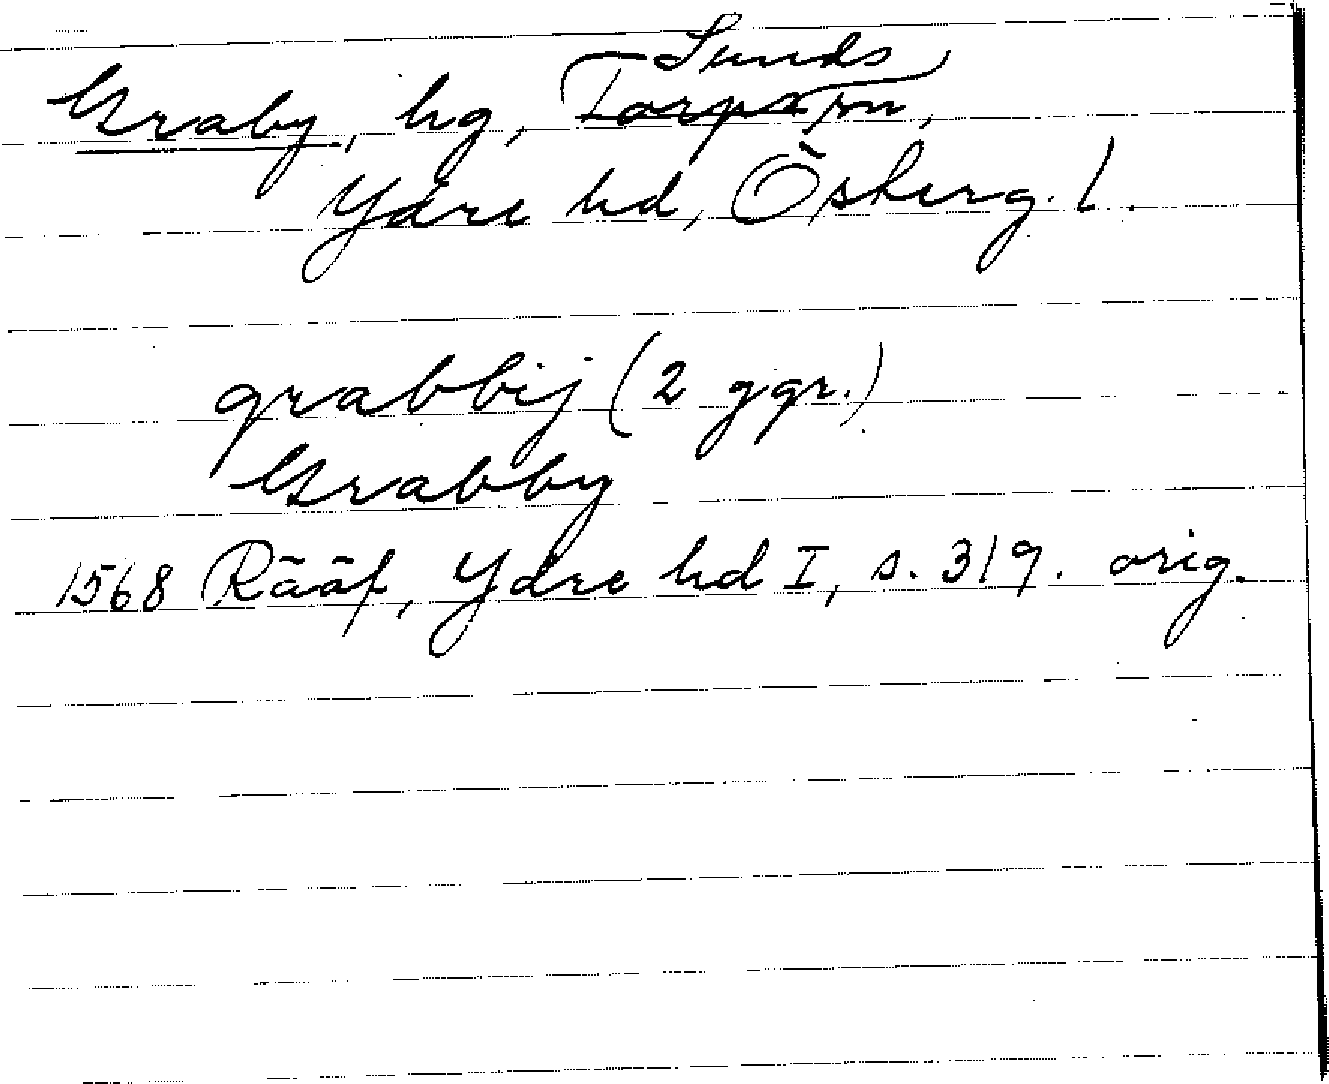 Sunds
Graby, hg, Torpa sn,
Ydre hd, Österg. l.
grabbij (2 ggr.)
Grabby
1568 Rääf, Ydre hd I, s. 319. orig.